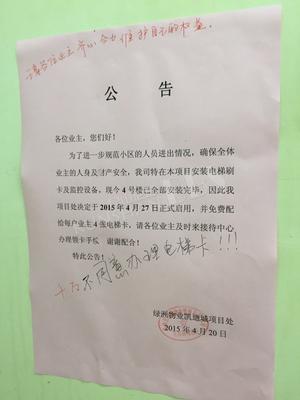 请各位业主齐心合力维护自己的权益.
公 告
各位业主，您们好！
为了进一步规范小区的人员进出情况，确保全体
业主的人身及财产安全，我司特在本项目安装电梯刷
卡及监控设备，现今 4 号楼已全部安装完毕，因此我
项目处决定于 2015 年 4 月 27 日正式启用，并免费配
给每户业主 4 张电梯卡，请各位业主及时来接待中心
办理领卡手续 谢谢配合！
特此公告！
千万不同意办理电梯卡!!!
绿洲物业凯旋城项目处
2015 年 4 月 20 日